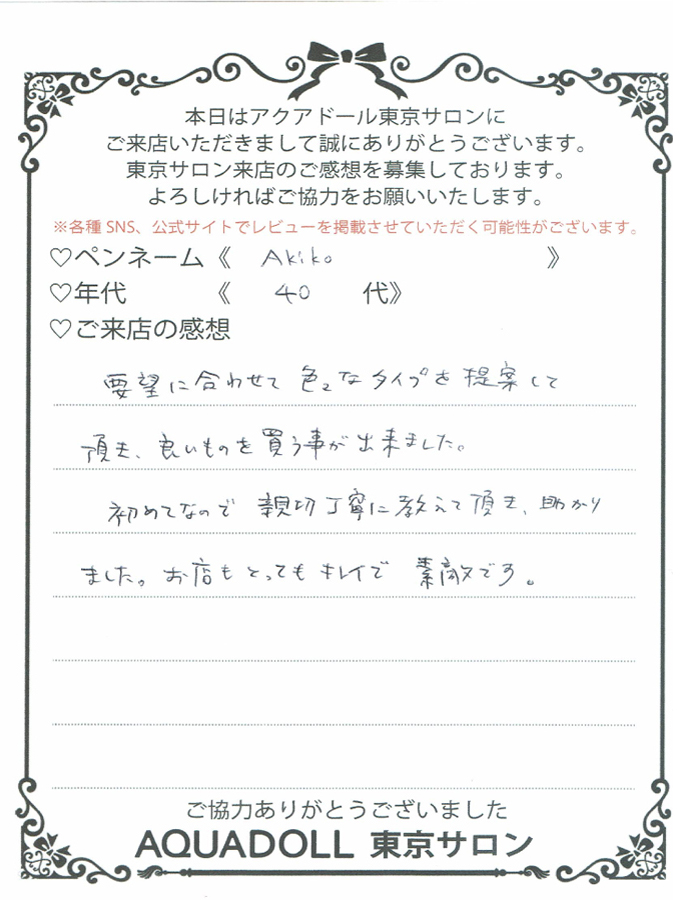 本日はアクアドール東京サロンに
ご来店いただきまして誠にありがとうございます。
東京サロン来店のご感想を募集しております。
よろしければご協力をお願いいたします。
※各種SNS、公式サイトでレビューを掲載させていただく可能性がございます。
♡ペンネーム《 Akiko 》
♡年代 《 40 代》
♡ご来店の感想
要望に合わせて 色々なタイプを提案して
頂き、良いものを買う事が出来ました。
初めてなので 親切丁寧に教えて頂き、助かり
ました。お店もとってもキレイで 素敵です。
ご協力ありがとうございました
AQUADOLL 東京サロン